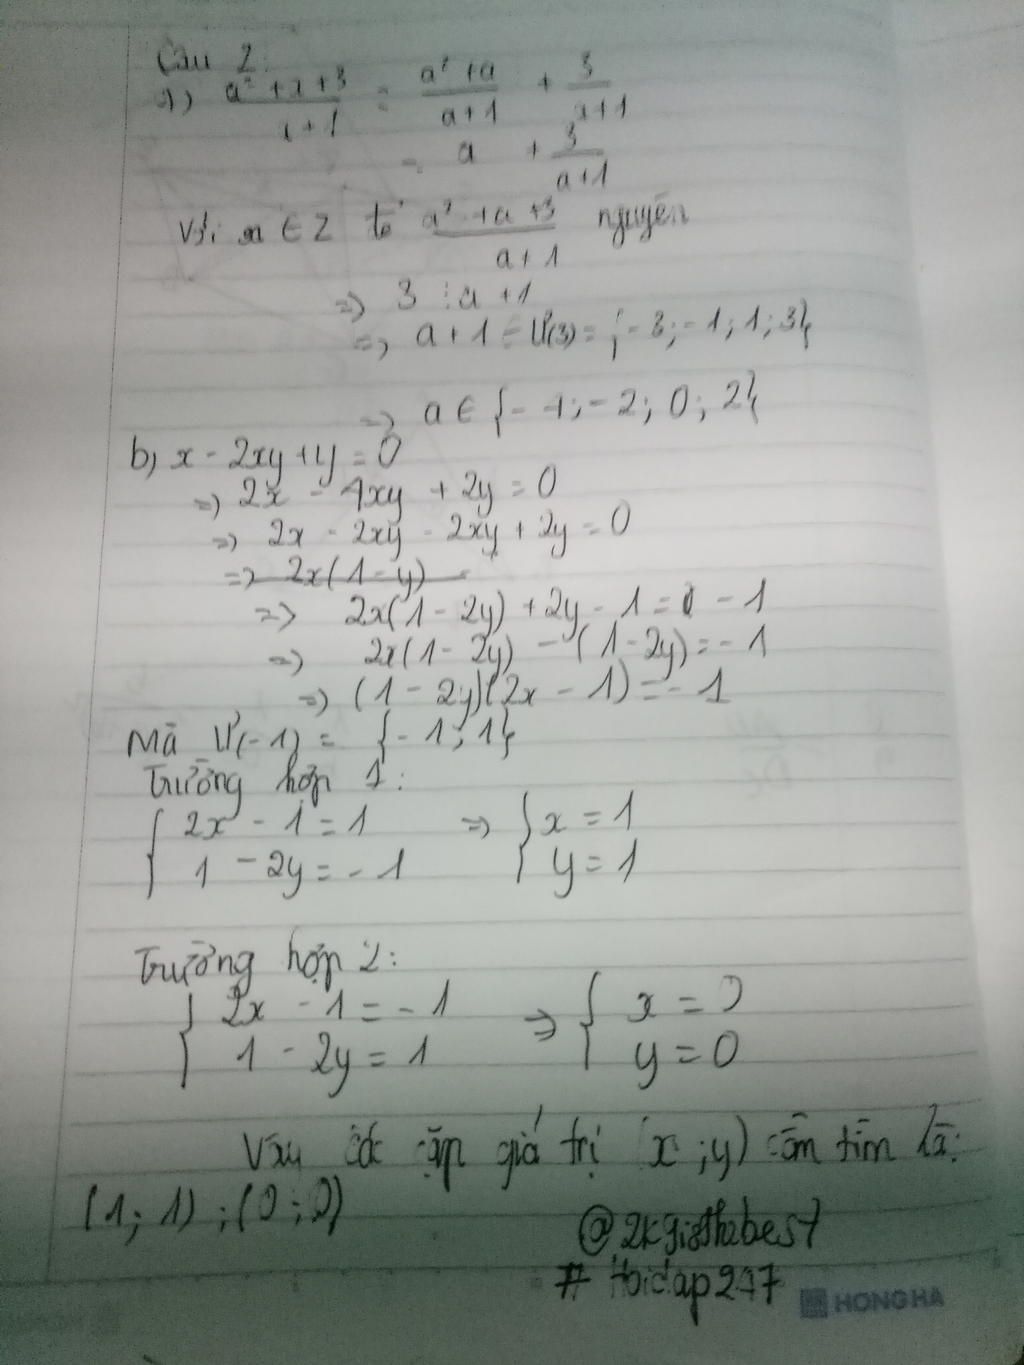 Câu 2:
a) a² + a + 3 / a + 1 = a² + a / a + 1 + 3 / a + 1
= a + 3 / a + 1
Với a ∈ Z để a² + a + 3 / a + 1 nguyên
=> 3 ⋮ a + 1
=> a + 1 = Ư(3) = {-3; -1; 1; 3}
=> a ∈ {-4; -2; 0; 2}
b) x - 2xy + y = 0
=> 2x - 4xy + 2y = 0
=> 2x - 2xy - 2xy + 2y = 0
=> 2x(1 - y)
=> 2x(1 - 2y) + 2y - 1 = 0 - 1
=> 2x(1 - 2y) - (1 - 2y) = -1
=> (1 - 2y)(2x - 1) = -1
Mà Ư(-1) = {-1; 1}
Trường hợp 1:
{ 2x - 1 = 1 => { x = 1
1 - 2y = -1 y = 1
Trường hợp 2:
{ 2x - 1 = -1 => { x = 0
1 - 2y = 1 y = 0
Vậy các cặp giá trị (x; y) cần tìm là:
(1; 1); (0; 0)
# Hoidap247
HONG HA